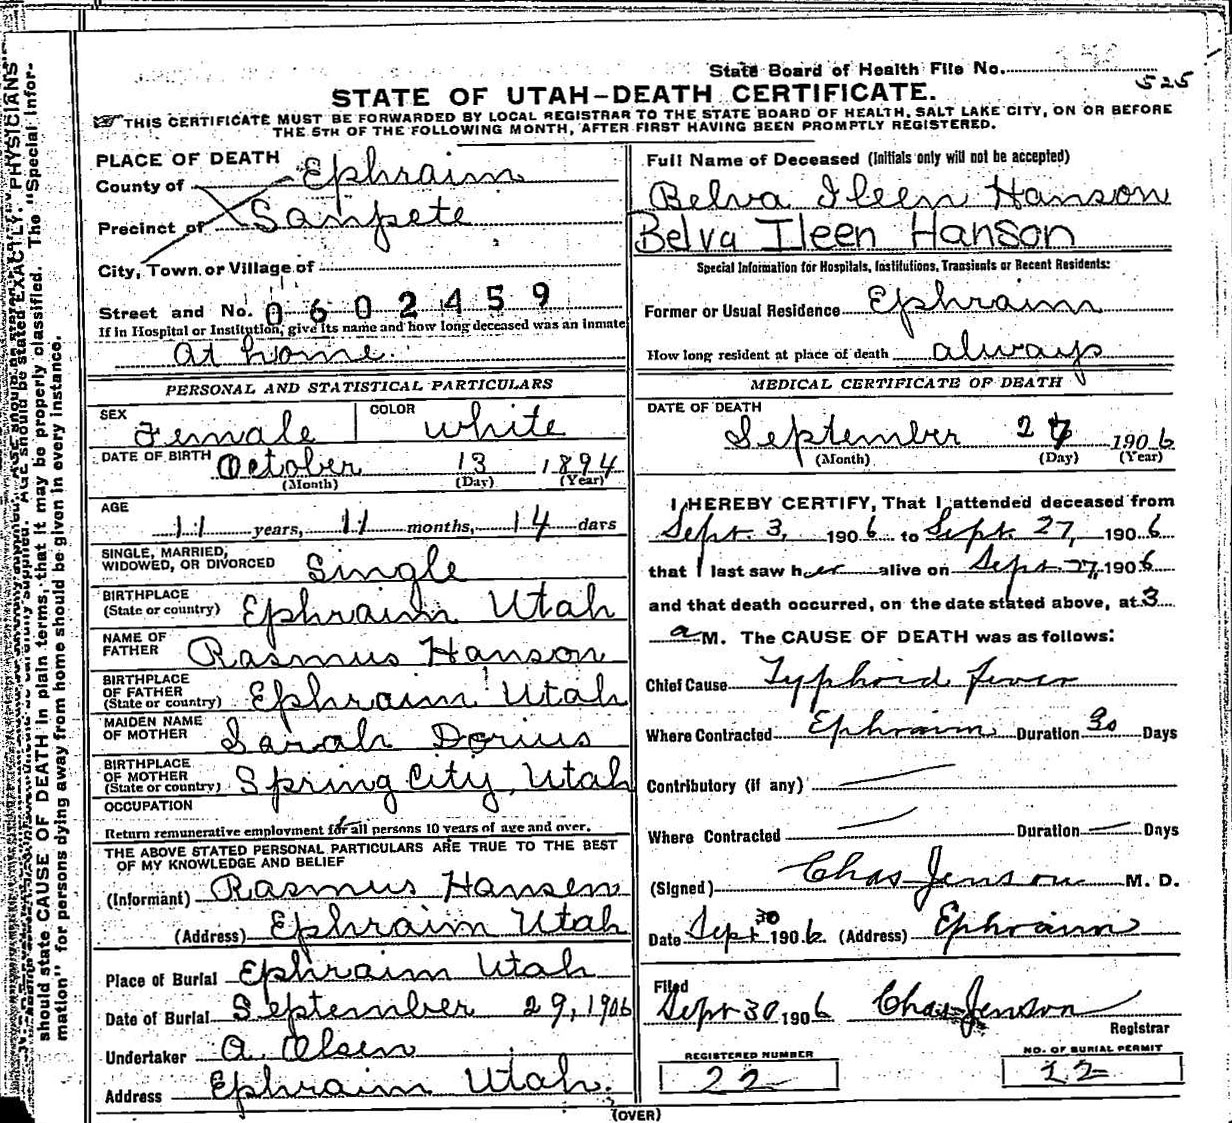 State Board of Health File No.
525
STATE OF UTAH—DEATH CERTIFICATE.
THIS CERTIFICATE MUST BE FORWARDED BY LOCAL REGISTRAR TO THE STATE BOARD OF HEALTH, SALT LAKE CITY, ON OR BEFORE
THE 5TH OF THE FOLLOWING MONTH, AFTER FIRST HAVING BEEN PROMPTLY REGISTERED.
PLACE OF DEATH
County of Ephraim
Precinct of Sanpete
City, Town or Village of
Street and No. 0602459
If in Hospital or Institution, give its name and how long deceased was an inmate
At home.
PERSONAL AND STATISTICAL PARTICULARS
SEX Female COLOR White
DATE OF BIRTH October 13 1894
(Month) (Day) (Year)
AGE
11 years, 11 months, 14 days
SINGLE, MARRIED,
WIDOWED, OR DIVORCED Single
BIRTHPLACE
(State or country) Ephraim Utah
NAME OF
FATHER Rasmus Hanson
BIRTHPLACE
OF FATHER
(State or country) Ephraim Utah
MAIDEN NAME
OF MOTHER Sarah Dorius
BIRTHPLACE
OF MOTHER
(State or country) Spring City, Utah
OCCUPATION
Return remunerative employment for all persons 10 years of age and over.
THE ABOVE STATED PERSONAL PARTICULARS ARE TRUE TO THE BEST
OF MY KNOWLEDGE AND BELIEF
(Informant) Rasmus Hansen
(Address) Ephraim Utah
Place of Burial Ephraim Utah
Date of Burial September 29, 1906
Undertaker A. Olsen
Address Ephraim Utah.
Full Name of Deceased (Initials only will not be accepted)
Belva Ileen Hanson
Belva Ileen Hanson
Special Information for Hospitals, Institutions, Transients or Recent Residents:
Former or Usual Residence Ephraim
How long resident at place of death always
MEDICAL CERTIFICATE OF DEATH
DATE OF DEATH
September 27 1906
(Month) (Day) (Year)
I HEREBY CERTIFY, That I attended deceased from
Sept. 3, 1906 to Sept. 27, 1906
that I last saw her alive on Sept 27, 1906
and that death occurred, on the date stated above, at 3
a M. The CAUSE OF DEATH was as follows:
Chief Cause Typhoid fever
Where Contracted Ephraim Duration 30 Days
Contributory (if any)
Where Contracted Duration — Days
(Signed) Chas Jenson M. D.
Date Sept 30 1906. (Address) Ephraim
Filed
Sept 30 1906 Chas Jenson
Registrar
REGISTERED NUMBER
22
NO. OF BURIAL PERMIT
22
(OVER)
should state CAUSE OF DEATH in plain terms, that it may be properly classified. The "Special Infor-
mation" for persons dying away from home should be given in every instance.